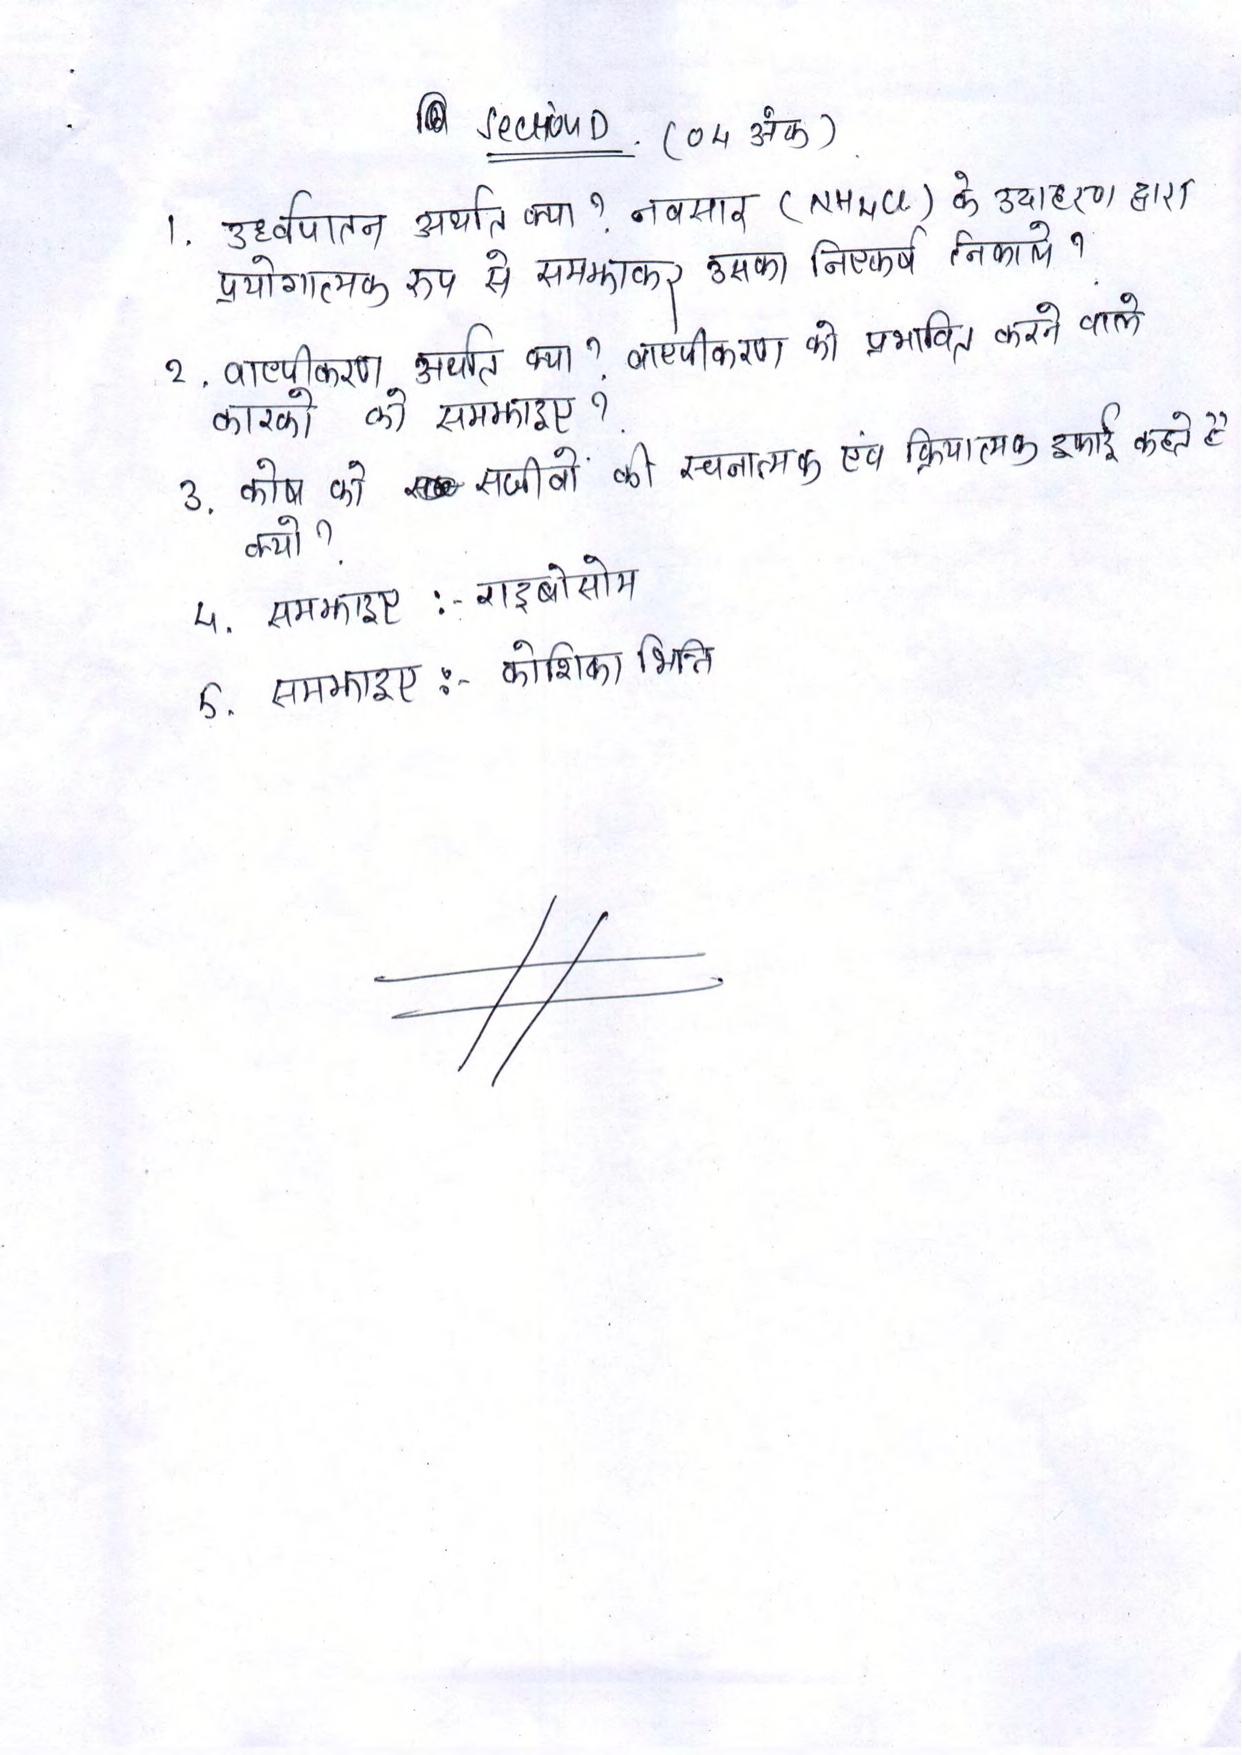 Section D. (04 अंक)
1. उर्ध्वपातन अर्थात क्या? नवसार (NH4Cl) के उदाहरण द्वारा
प्रयोगात्मक रुप से समझाकर उसका निष्कर्ष निकाले?
2. वाष्पीकरण अर्थात क्या? वाष्पीकरण को प्रभावित करने वाले
कारको को समझाइए?
3. कोष को सजीवों की रचनात्मक एंव क्रियात्मक इकाई कहते है
क्यो?
4. समझाइए :- राइबोसोम
5. समझाइए :- कोशिका भित्ति